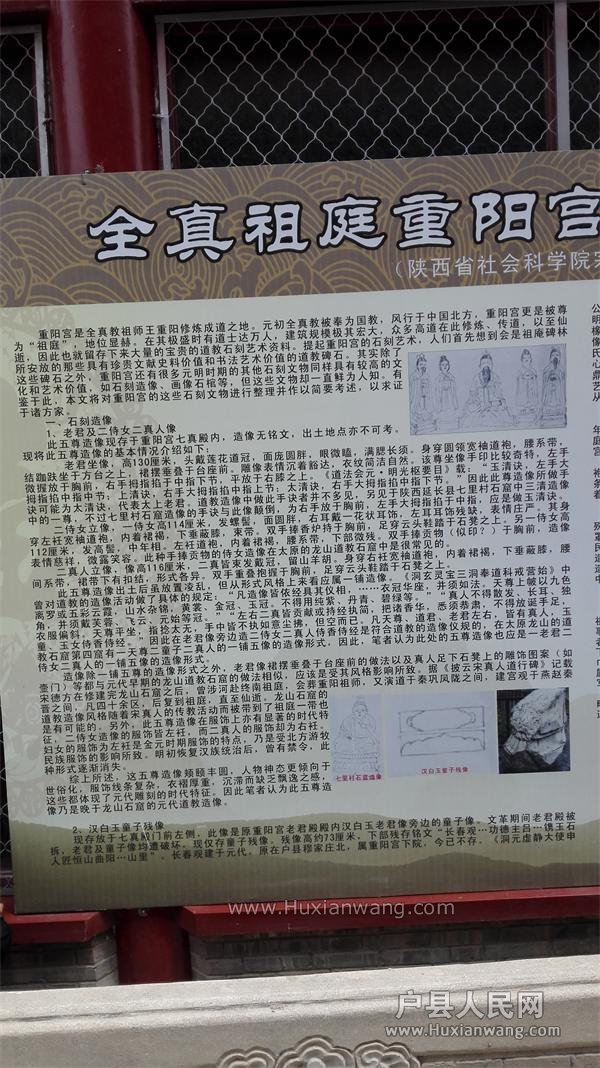 全真祖庭重阳宫
（陕西省社会科学院宗
重阳宫是全真教祖师王重阳修炼成道之地。元初全真教被奉为国教，风行于中国北方，重阳宫更是被尊
为“祖庭”，地位显赫，在其极盛时有道士达万人，建筑规模极其宏大，众多高道在此修炼、传道，以至仙
逝，因此也就留存下来大量的宝贵的道教石刻艺术资料。提起重阳宫的石刻艺术，人们首先想到会是祖庵碑林
所安放的那些具有珍贵文献史料价值和书法艺术价值的道教碑石。其实除了
这些碑石之外，重阳宫还有很多元明时期的其他石刻文物同样具有较高的文
化和艺术价值，如石刻造像、画像石棺等，但这些文物却一直鲜为人知。有
鉴于此，本文将对重阳宫的这些石刻文物进行整理并作以简要考述，以求证
于诸方家。
一、石刻造像
1、老君及二侍女二真人像
此五尊造像现存于重阳宫七真殿内，造像无铭文，出土地点亦不可考。
现将此五尊造像的基本情况介绍如下：
老君坐像，高130厘米，头戴莲花道冠，面庞圆胖，眼微瞌，满腮长须。身穿圆领宽袖道袍，腰系带，
结跏趺坐于方台之上，裙摆垂叠于台座前。雕像表情沉着豁达，衣纹简洁自然。该尊坐像手印比较奇特，左手
微握放于胸前，右手拇指掐指于中指下节，平放于右膝之上。《道法会元·明光枢要目》载：“玉清诀，左手大
拇指掐中指上节。上清诀，右手大拇指掐中指中节。太清诀，右手大拇指掐中指下节。”因此此石造像所做手
诀可能为太清诀，代表太上老君。道教造像中做此手诀者并不多见，另见于陕西延长县七里村石窟三清造像
中的一尊，不过像七里村石窟造像的手诀与此像颠倒，为右手放于胸前，左手大拇指掐于中指，应是做玉清诀。
二侍女立像，一侍女高114厘米，发髻髻，面圆胖，右耳戴一花状耳饰，左耳耳饰残缺，表情庄严。其身
穿左衽宽袖道袍，内着裙裾，下垂蔽膝，束带。双手捧香炉持于胸前，足穿云头鞋踏于石凳之上。另一侍女高
112厘米，发高髻，中年相，左衽道袍，内着裙裾，腰系带，下部微残。双手捧贡物（似印？）于胸前，造像
表情慈祥，微露笑容。此种手捧贡物的侍女造像在太原的龙山道教石窟中是很常见的。
二真人立像，像高116厘米，二真皆束发戴冠，留山羊胡。身穿右衽宽袖道袍，内着裙裾，下垂蔽膝，腰
间系带，裙带下有扣结，形式各异，双手重叠抱握于胸前，足穿云头鞋踏于石凳之上。
此五尊造像出土后虽放置凌乱，但从形式风格上来看应属一铺造像。《洞玄灵宝三洞奉道科戒营始》中
曾对道教的造像活动做了具体的规定：“凡造像皆依经具其仪相，……衣冠华座，并须如法。天尊上帔以九色
离罗或五彩云霞，山水杂锦，黄裳、金冠、玉冠。不得用纯紫、丹青、碧绿等。”“真人不得散发、长耳、独
角，并须戴芙蓉、飞云、元始等冠。”“左右二真皆贡献或持经执简，把诸香华，悉须恭肃，不得放诞手足，
衣服偏斜。天尊平坐，指捻太无，手中皆不执如意尘拂，但空而已。凡天尊、道君、老君左右，皆有真人、玉
童、玉女侍香侍经……”因此在老君像旁边造二侍女二真人侍香侍经是符合道教的造像仪规的，在太原龙山的道
教石窟第四窟有一天尊二童子二真人的一铺五像的造像形式，因此，笔者认为此处的五尊造像也应是一老君二
侍女二真人的一铺五像的造像形式。
造像除一铺五尊的造像形式之外，老君像裙摆垂叠于台座前的做法以及真人足下石凳上的雕饰图案（如
壶门）等都与元代早期的龙山道教石窟的做法相似，应该是受其风格影响所致。据《披云宋真人道行碑》记载
宋德方在修建完龙山石窟之后，曾涉河赴终南祖庭，会葬重阳祖师，又演道于秦巩凤陇之间，建宫观于燕赵秦
晋之间，凡四十余区，后复到祖庭，直至仙逝。龙山石窟的
道教造像风格随着宋真人的传教活动而被带到了祖庭一带也
是有可能的。另外，此五尊造像在服饰上亦有显著的时代特
征，二侍女造像的服饰皆左衽，而二真人的服饰却为右衽。
妇女的服饰为左衽是金元时期服饰的特点，乃是受北方游牧
民族服饰的影响所致。明初恢复汉族统治后，曾有禁令，此
种形式逐渐消失。
综上所述，这五尊造像颊颐丰圆，人物神态更倾向于
世俗化，服饰线条复杂，衣褶厚重，沉滞而缺乏飘逸之感，
这些都体现了元代雕刻的时代特征。因此笔者认为此五尊造
像乃是晚于龙山石窟的元代道教造像。
七里村石窟造像
汉白玉童子残像
2、汉白玉童子残像
现存放于七真殿门前左侧，此像是原重阳宫老君殿殿内汉白玉老君像旁边的童子像。文革期间老君殿被
拆，老君及童子像均遭破坏。现仅存童子残像。残像高约73厘米，下部残存铭文“长春观…功德主吕…镌玉石
人匠恒山曲阳…山里”。长春观建于元代，原在户县穆家庄北，属重阳宫下院，今已不存。《洞元虚静大使申
www.Huxianwang.com
户县人民网
www.Huxianwang.com